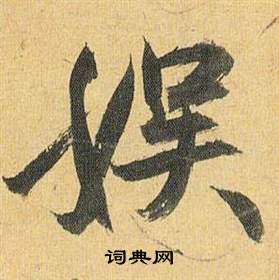 娱
词典网